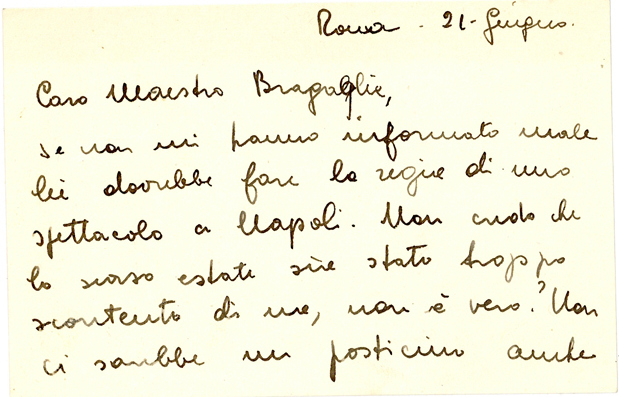 Roma - 21 - Giugno.
Caro Maestro Bragaglia,
se non mi hanno informato male
lei dovrebbe fare la regia di uno
spettacolo a Napoli. Non credo che
la scorsa estate sia stato troppo
scontento di me, non è vero? Non
ci sarebbe un posticino anche